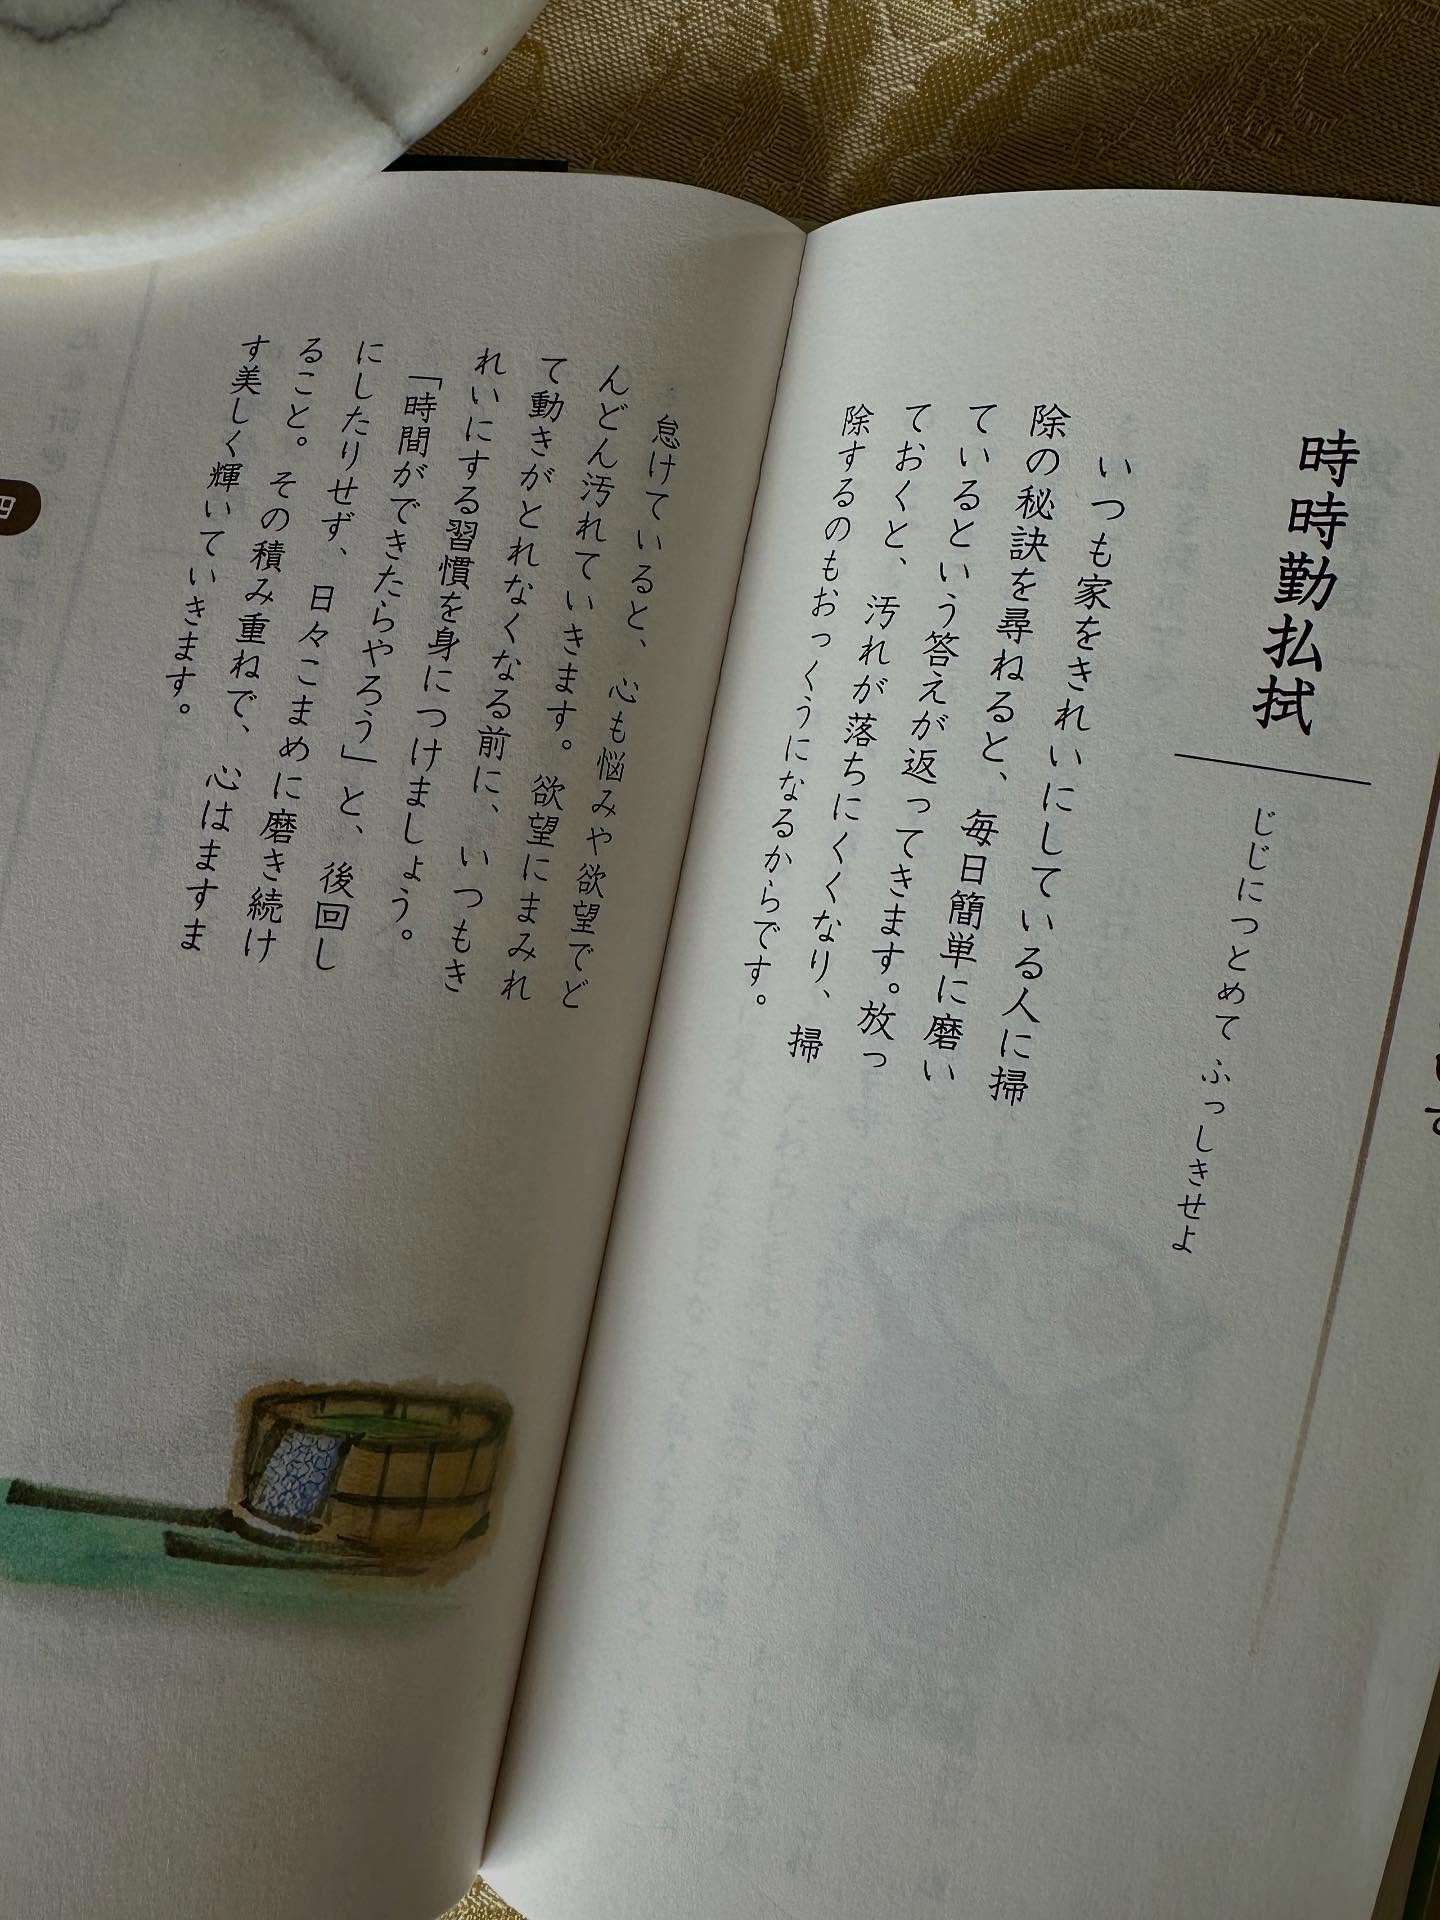 時時勤払拭
じじにつとめてふっしきせよ
いつも家をきれいにしている人に掃
除の秘訣を尋ねると、毎日簡単に磨い
ているという答えが返ってきます。放っ
ておくと、汚れが落ちにくくなり、掃
除するのもおっくうになるからです。
怠けていると、心も悩みや欲望でど
んどん汚れていきます。欲望にまみれ
て動きがとれなくなる前に、いつもき
れいにする習慣を身につけましょう。
「時間ができたらやろう」と、後回し
にしたりせず、日々こまめに磨き続け
ること。その積み重ねで、心はますま
す美しく輝いていきます。
四